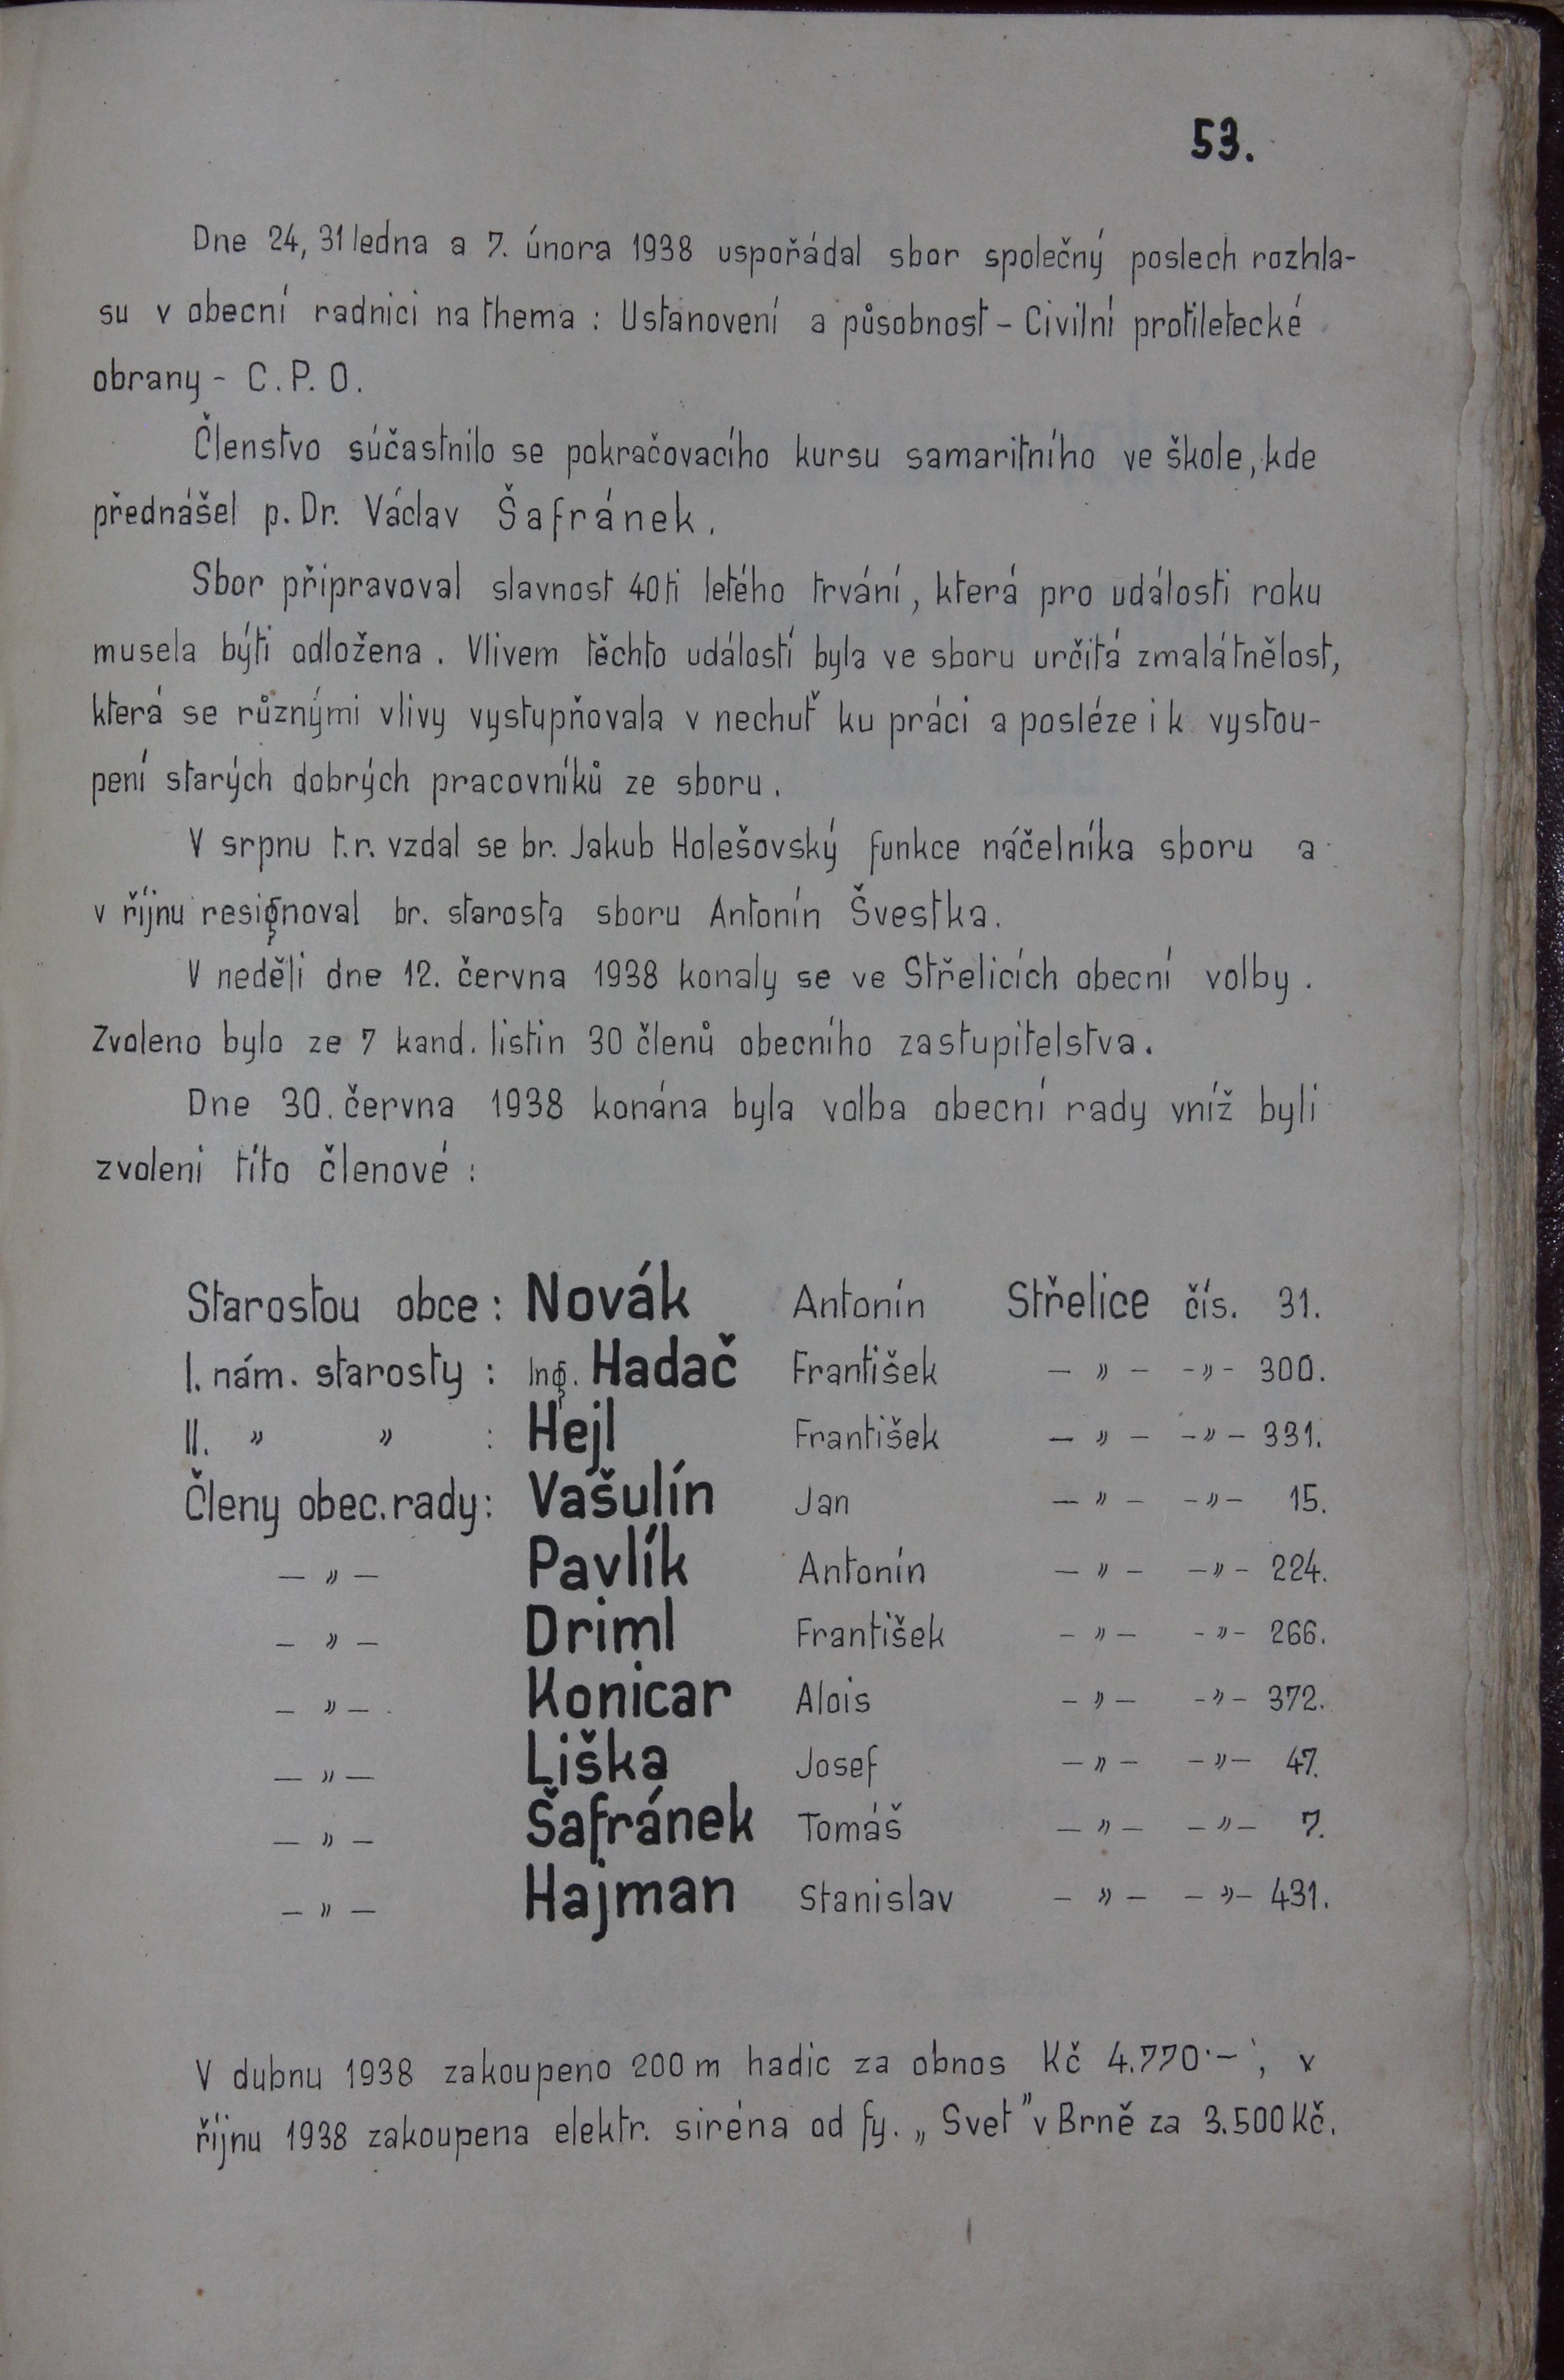 53.
Dne 24, 31 ledna a 7. února 1938 uspořádal sbor společný poslech rozhla-
su v obecní radnici na thema : Ustanovení a působnost - Civilní protiletecké
obrany - C. P. O.
Členstvo súčastnilo se pokračovacího kursu samaritního ve škole, kde
přednášel p. Dr. Václav Šafránek.
Sbor připravoval slavnost 40ti letého trvání, která pro události roku
musela býti odložena. Vlivem těchto událostí byla ve sboru určitá zmalátnělost,
která se různými vlivy vystupňovala v nechuť ku práci a posléze i k vystou-
pení starých dobrých pracovníků ze sboru.
V srpnu t.r. vzdal se br. Jakub Holešovský funkce náčelníka sboru a
v říjnu resignoval br. starosta sboru Antonín Švestka.
V neděli dne 12. června 1938 konaly se ve Střelicích obecní volby.
Zvoleno bylo ze 7 kand. listin 30 členů obecního zastupitelstva.
Dne 30. června 1938 konána byla volba obecní rady vníž byli
zvoleni títo členové :
Starostou obce : Novák Antonín Střelice čís. 31.
I. nám. starosty : Ing. Hadač František — " — - " - 300.
II. " " : Hejl František — " — — " — 331.
Členy obec. rady : Vašulín Jan — " — — " — 15.
— " — Pavlík Antonín — " — — " — 224.
— " — Driml František — " — - " - 266.
— " — Konicar Alois — " — - " — 372.
— " — Liška Josef — " — — " — 47.
— " — Šafránek Tomáš — " — — " — 7.
— " — Hajman Stanislav — " — — " — 431.
V dubnu 1938 zakoupeno 200 m hadic za obnos Kč 4.770·— , v
říjnu 1938 zakoupena elektr. siréna od fy. „ Svet " v Brně za 3.500 Kč.